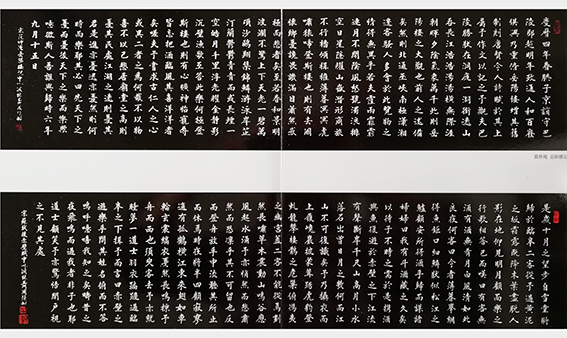 慶曆四年春滕子京謫守巴
陵郡越明年政通人和百廢
俱興乃重修岳陽樓增其舊
制刻唐賢今人詩賦於其上
屬予作文以記之予觀夫巴
陵勝狀在洞庭一湖銜遠山
吞長江浩浩湯湯橫無際涯
朝暉夕陰氣象萬千此則岳
陽樓之大觀也前人之述備
矣然則北通巫峽南極瀟湘
遷客騷人多會於此覽物之
情得無異乎若夫霪雨霏霏
連月不開陰風怒號濁浪排
空日星隱耀山岳潛形商旅
不行檣傾楫摧薄暮冥冥虎
嘯猿啼登斯樓也則有去國
懷鄉憂讒畏譏滿目蕭然感
極而悲者矣至若春和景明
波瀾不驚上下天光一碧萬
頃沙鷗翔集錦鱗游泳岸芷
汀蘭鬱鬱青青而或長煙一
空皓月千里浮光耀金靜影
沉璧漁歌互答此樂何極登
斯樓也則有心曠神怡寵辱
皆忘把酒臨風其喜洋洋者
矣嗟夫予嘗求古仁人之心
或異二者之為何哉不以物
喜不以己悲居廟堂之高則
憂其民處江湖之遠則憂其
君是進亦憂退亦憂然則何
時而樂耶其必曰先天下之
憂而憂後天下之樂而樂歟
噫微斯人吾誰與歸時六年
九月十五日
宋范仲淹岳陽樓記
是歲十月之望步自雪堂將
歸於臨皋二客從予過黃泥
之坂霜露既降木葉盡脫人
影在地仰見明月顧而樂之
行歌相答已而嘆曰有客無
酒有酒無肴月白風清如此
良夜何客曰今者薄暮舉網
得魚巨口細鱗狀似松江之
鱸顧安所得酒乎歸而謀諸
婦婦曰我有斗酒藏之久矣
以待子不時之需於是攜酒
與魚復遊於赤壁之下江流
有聲斷岸千尺山高月小水
落石出曾日月之幾何而江
山不可復識矣予乃攝衣而
上履巉巖披蒙茸踞虎豹登
虯龍攀棲鶻之危巢俯馮夷
之幽宮蓋二客不能從焉劃
然長嘯草木震動山鳴谷應
風起水涌予亦悄然而悲肅
然而恐凜乎其不可留也反
而登舟放乎中流聽其所止
而休焉時夜將半四顧寂寥
適有孤鶴橫江東來翅如車
輪玄裳縞衣戛然長鳴掠予
舟而西也須臾客去予亦就
睡夢一道士羽衣蹁躚過臨
皋之下揖予而言曰赤壁之
遊樂乎問其姓名俯而不答
嗚呼噫嘻我知之矣疇昔之
夜飛鳴而過我者非子也耶
道士顧笑予亦驚悟開戶視
之不見其處
宋蘇軾後赤壁賦